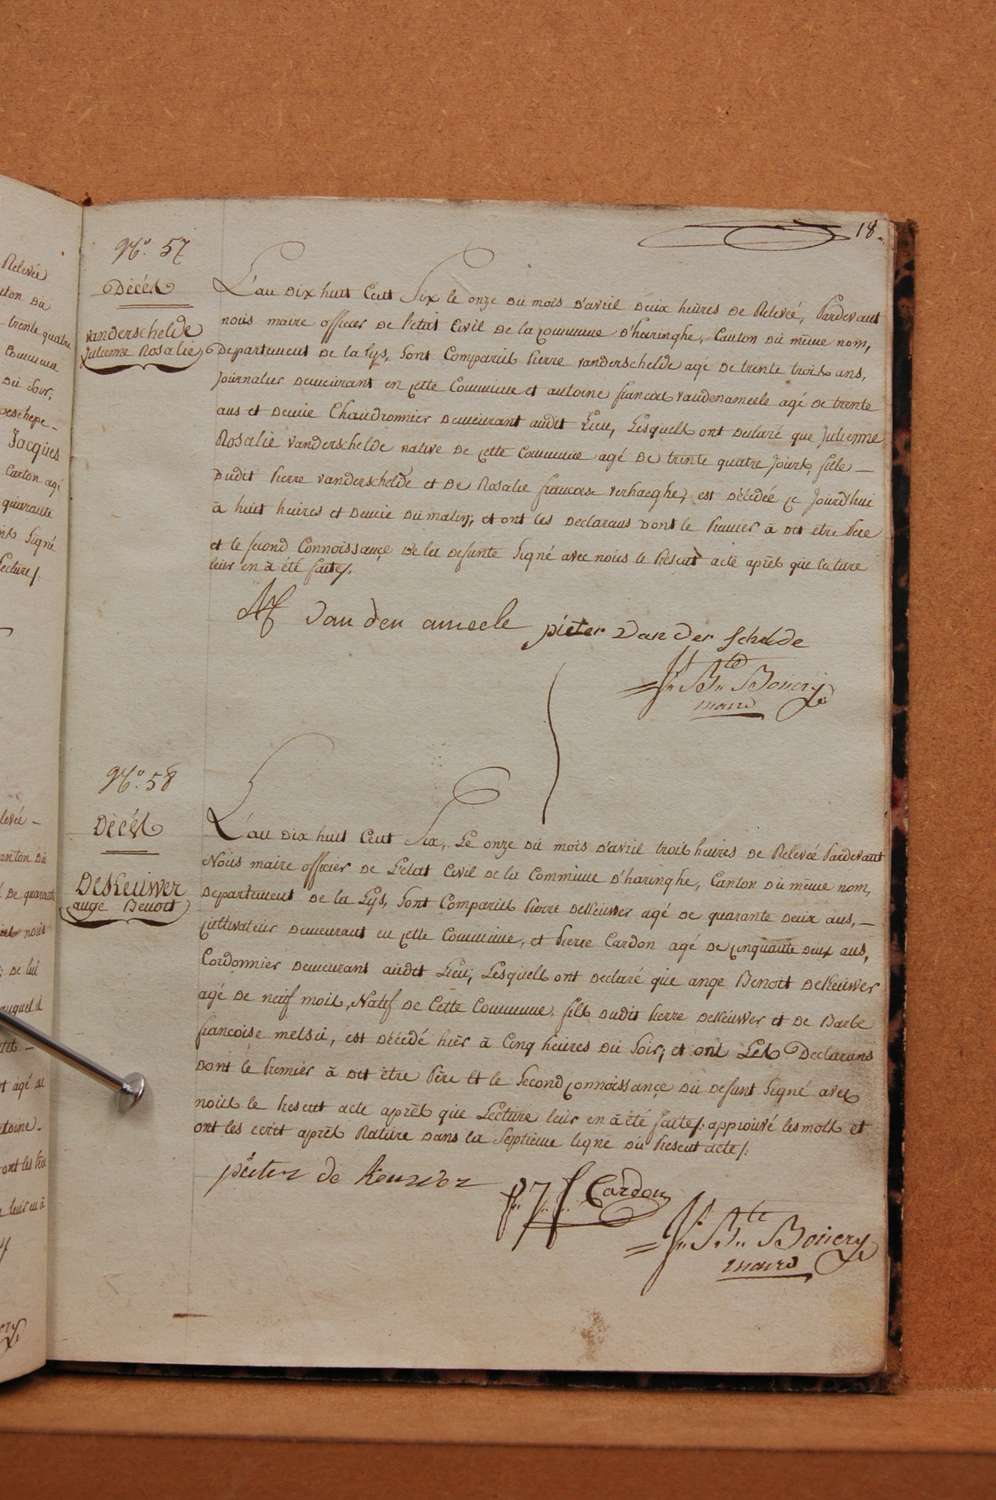 18.
No. 57
Décès
vanderschelde
Julienne Rosalie
L'an dix huit Cent Six le onze du mois d'avril deux heures de Relevée, Pardevant
nous maire officier de l'etat Civil de la Commune d'haringhe, Canton du même nom,
Departement de la Lys, Sont Comparus Pierre vanderschelde agé de trente trois ans,
Journalier demeurant en cette Commune et antoine francois vandenameele agé de trente
ans et demie Chaudronnier demeurant audit Lieu, Lesquels ont declaré que Julienne
Rosalie vanderschelde native de cette Commune agé de trente quatre Jours, fille
dudit Pierre vanderschelde et de Rosalie francoise verhaeghe, est décédée ce Jourd'hui
à huit heures et demie du matin, et ont les declarans dont le Premier à dit être Père
et le second Connoissançe de la defunte Signé avec nous le Present acte après que lecture
leur en à été faite.
AF van den ameele pieter van der schelde
Jn Bte Bouery
maire
No. 58
Décès
DeKeuwer
ange Benoit
L'an dix huit Cent Six, Le onze du mois d'avril trois heures de Relevée Pardevant
Nous maire officier de L'etat Civil de la Commune d'haringhe, Canton du même nom,
Departement de la Lys, Sont Comparus Pierre DeKeuwer agé de quarante deux ans,
Cultivateur demeurans en cette Commune, et Pierre Cardon agé de cinquante deux ans,
Cordonnier demeurans audit Lieu, Lesquels ont declaré que ange Benoit DeKeuwer
agé de neuf mois, Natif de Cette Commune, fils dudit Pierre DeKeuwer et de Barbe
francoise melsie, est décédé hier à Cinq heures du Soir, et ont Les Declarans
dont le Premier à dit être Père Et le Second Connoissançe du defunt Signé avec
nous le Present acte après que Lecture leur en à été faite. approuvé les mots et
ont les ecrit après Rature dans la Septieme ligne du Present acte.
pieter de Keuwer Cardon
Jn Bte Bouery
maire